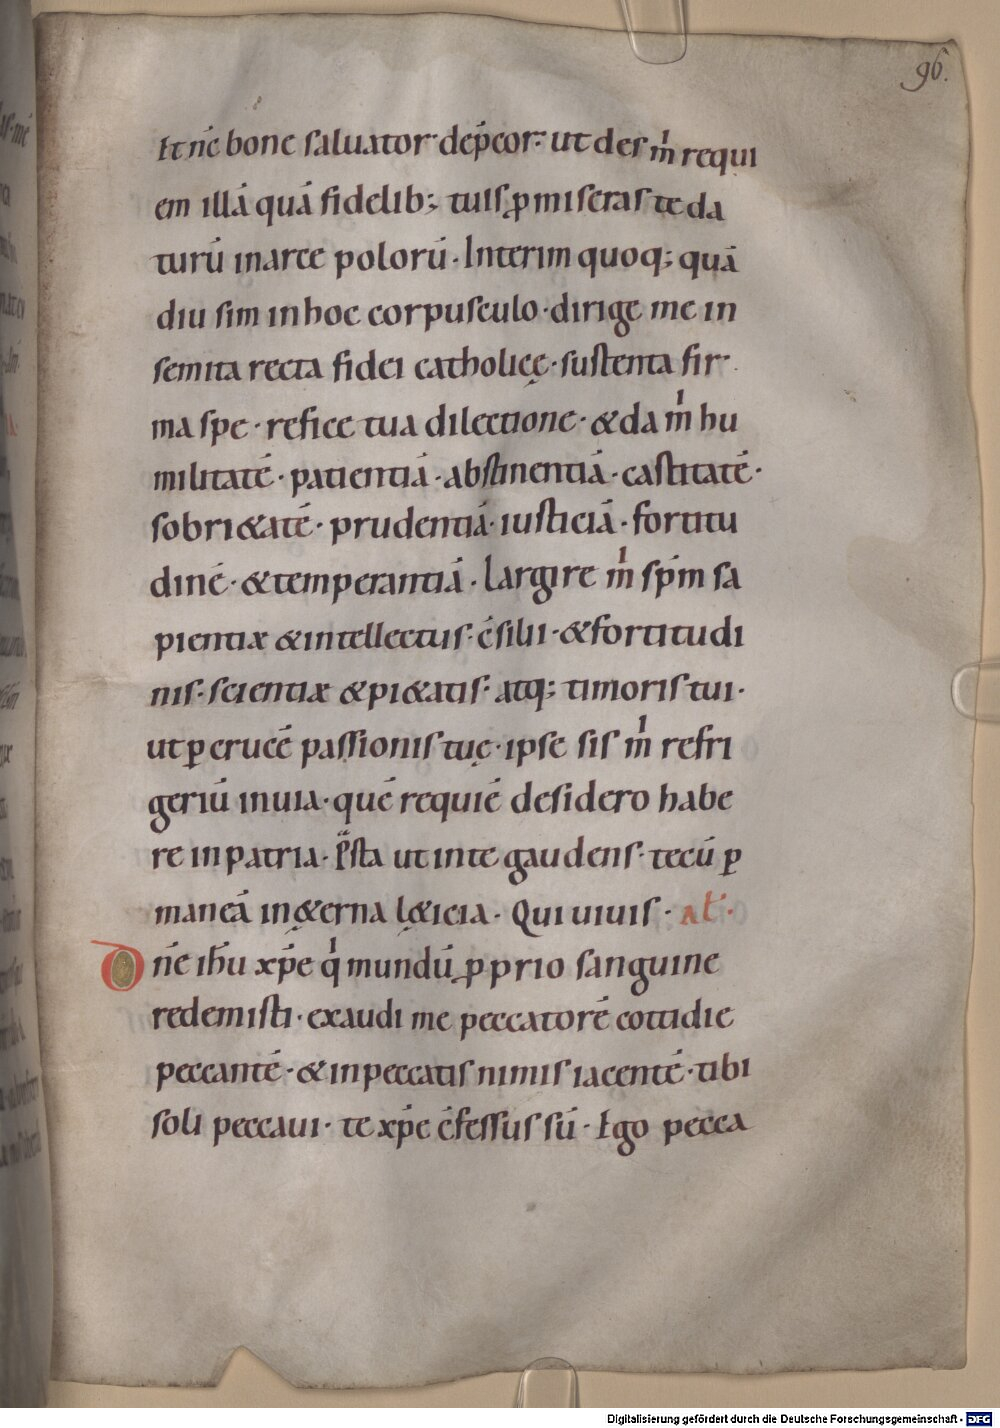 96.
Et nc̄ bone saluator dep̄cor ut des m̍ requi
em illā quā fidelib; tuis ꝓmiseras te da
turū in arce polorū. Interim quoq; quā
diu sim in hoc corpusculo. dirige me in
semita recta fidei catholicę. sustenta fir
ma spe. refice tua dilectione. & da m̍ hu
militatē. patientiā. abstinentiā. castitatē.
sobri&atē. prudentiā. iusticiā. fortitu
dinē. & temperantiā. Largire m̍ sp̄m sa
pientiæ & intellectus. c̄silii. & fortitudi
nis. scientiæ & pi&atis. atq; timoris tui.
ut ꝑ crucē passionis tuę. ipse sis m̍ refri
geriū in uia. quē requiē desidero habe
re in patria. P̄sta ut in te gaudens. tecū ꝑ
maneā in ę&erna l&icia. Qui uiuis. Al̄.
Dn̄e ih̄u xp̄e q̍ mundū ꝓprio sanguine
redemisti. exaudi me peccatorē cottidie
peccantē. & in peccatis nimis iacentē. tibi
soli peccaui. te xp̄e c̄fessus sū. Ego pecca
Digitalisierung gefördert durch die Deutsche Forschungsgemeinschaft - DFG